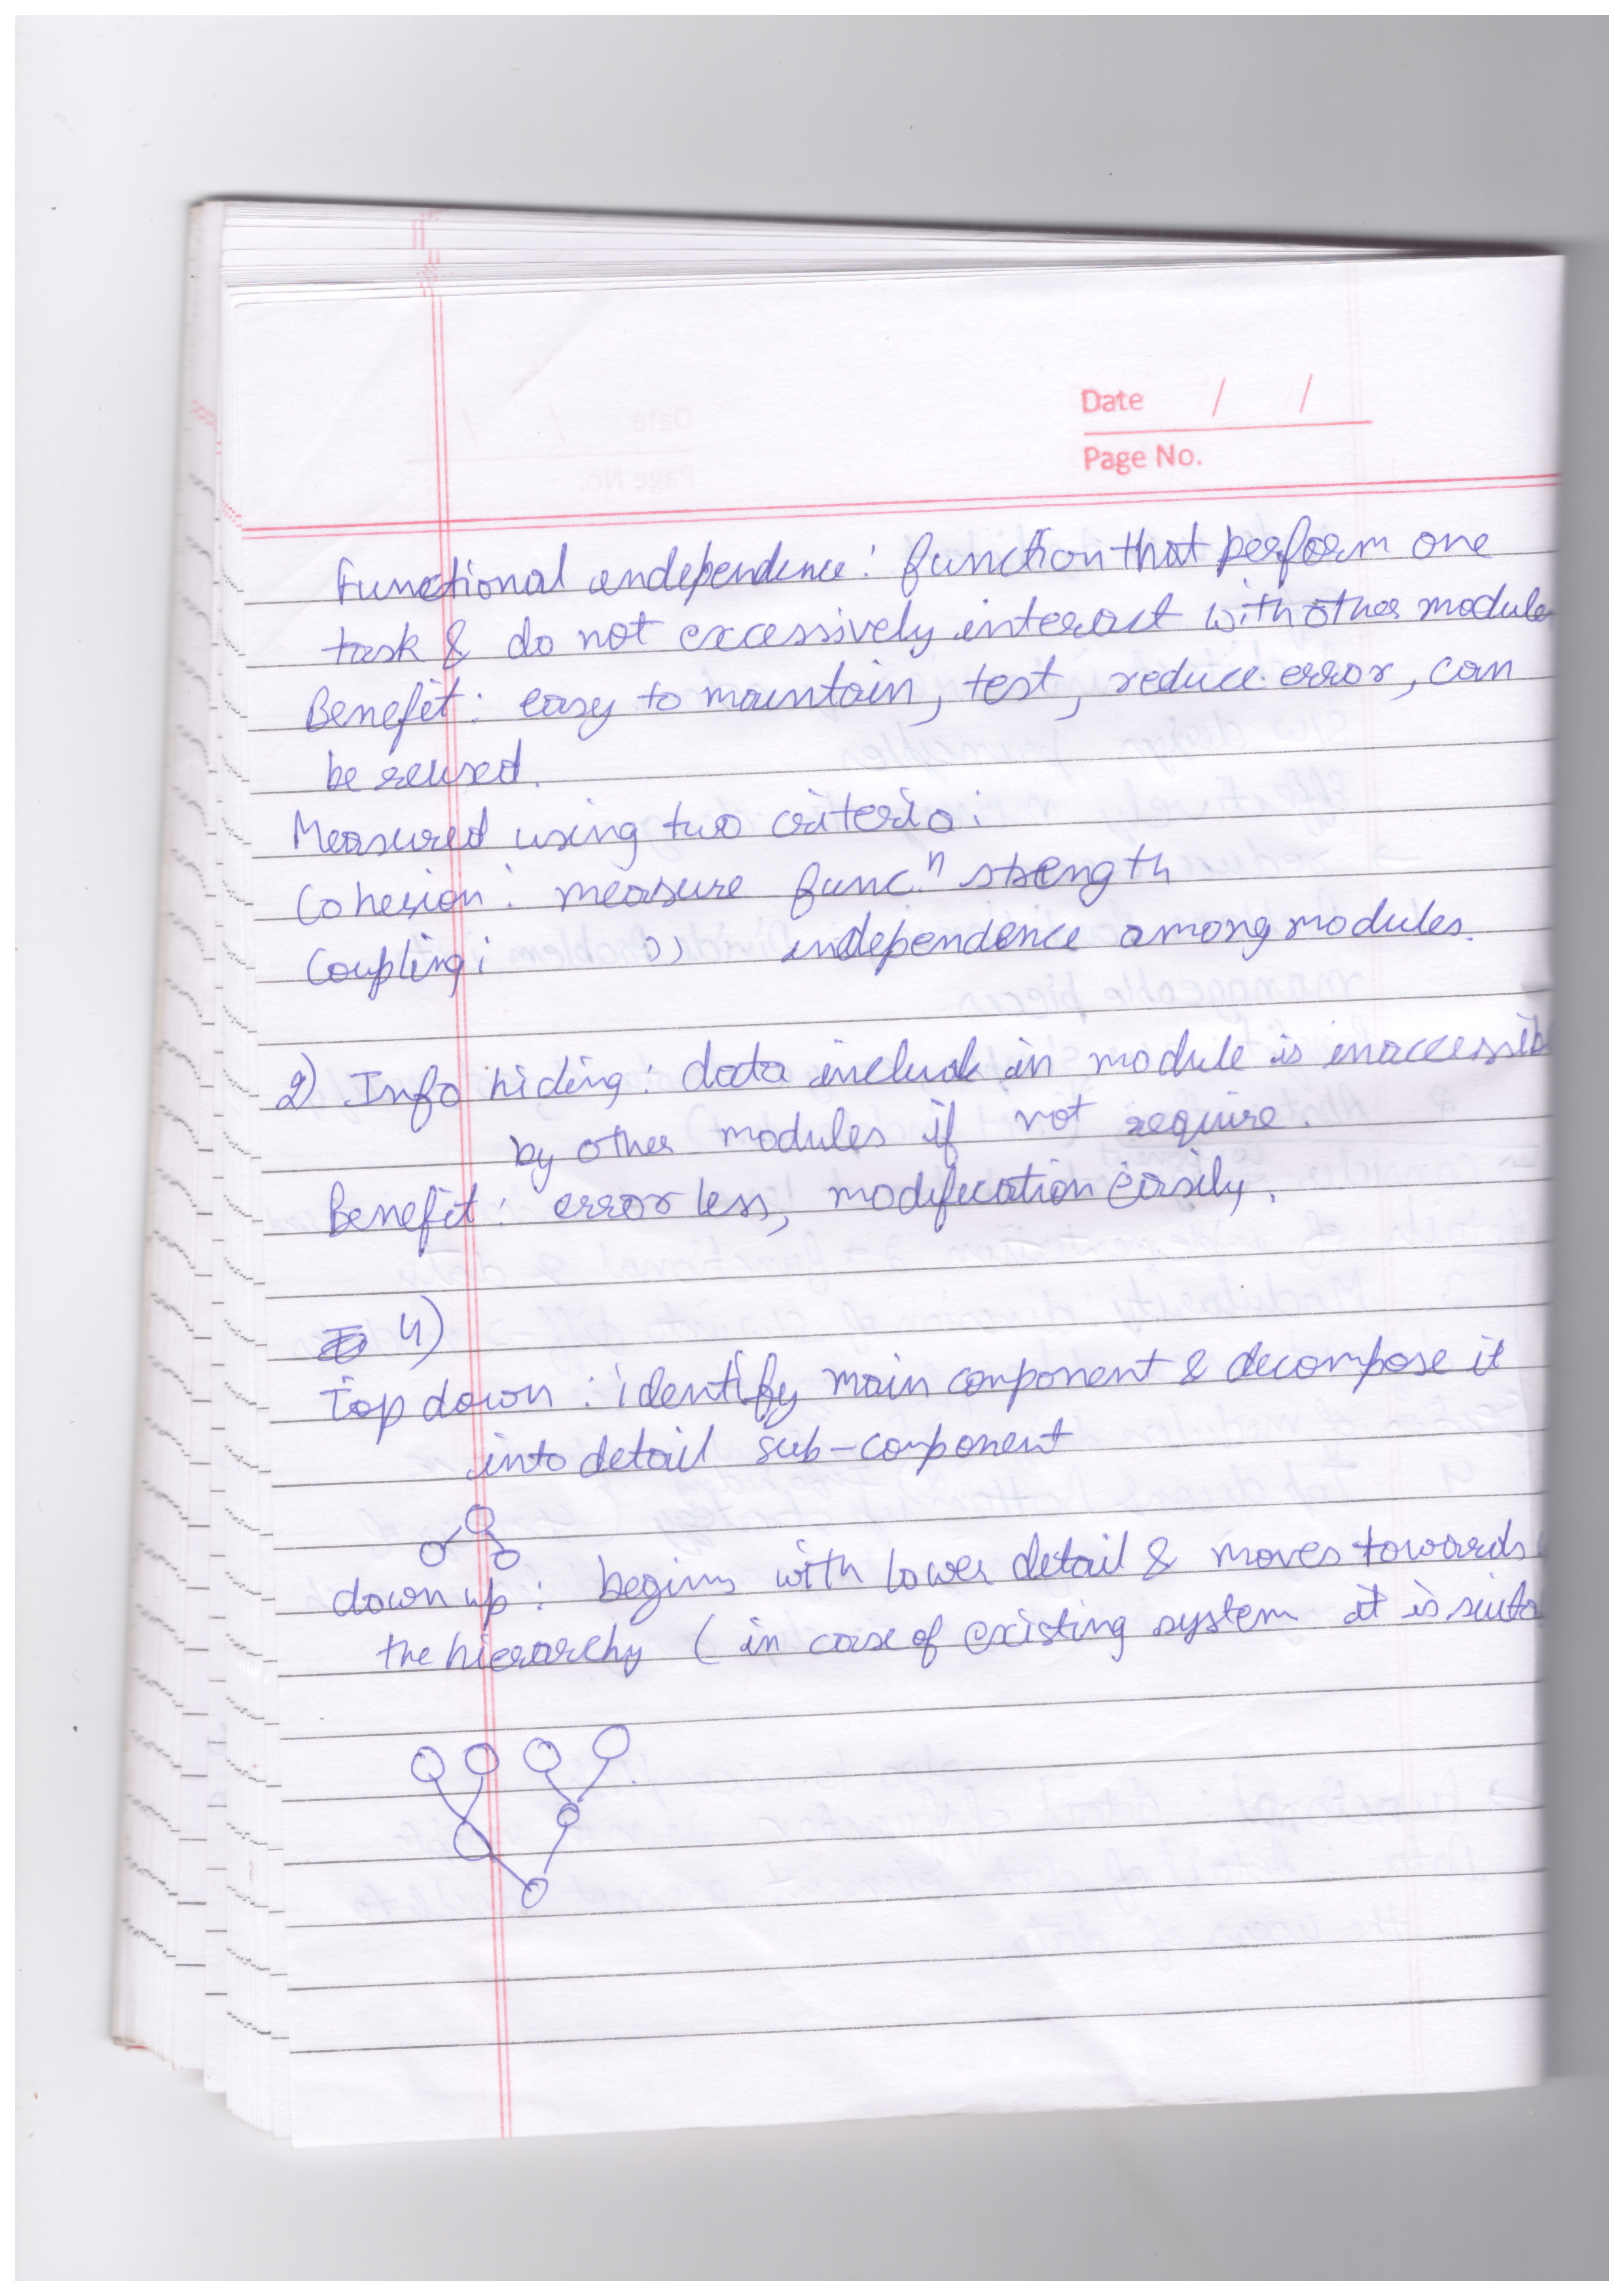 Date / /
Page No.
Functional independence: function that perform one
task & do not excessively interact with other module
Benefit: easy to maintain, test, reduce error, can
be reused.
Measured using two criteria:
Cohesion: measure func.n strength
Coupling: )) independence among modules.
2) Info hiding: data include in module is inaccessib
by other modules if not require.
Benefit: error less, modification easily.
4)
Top down: identify main component & decompose it
into detail sub-component
down up: begins with lower detail & moves towards
the hierarchy (in case of existing system it is suita